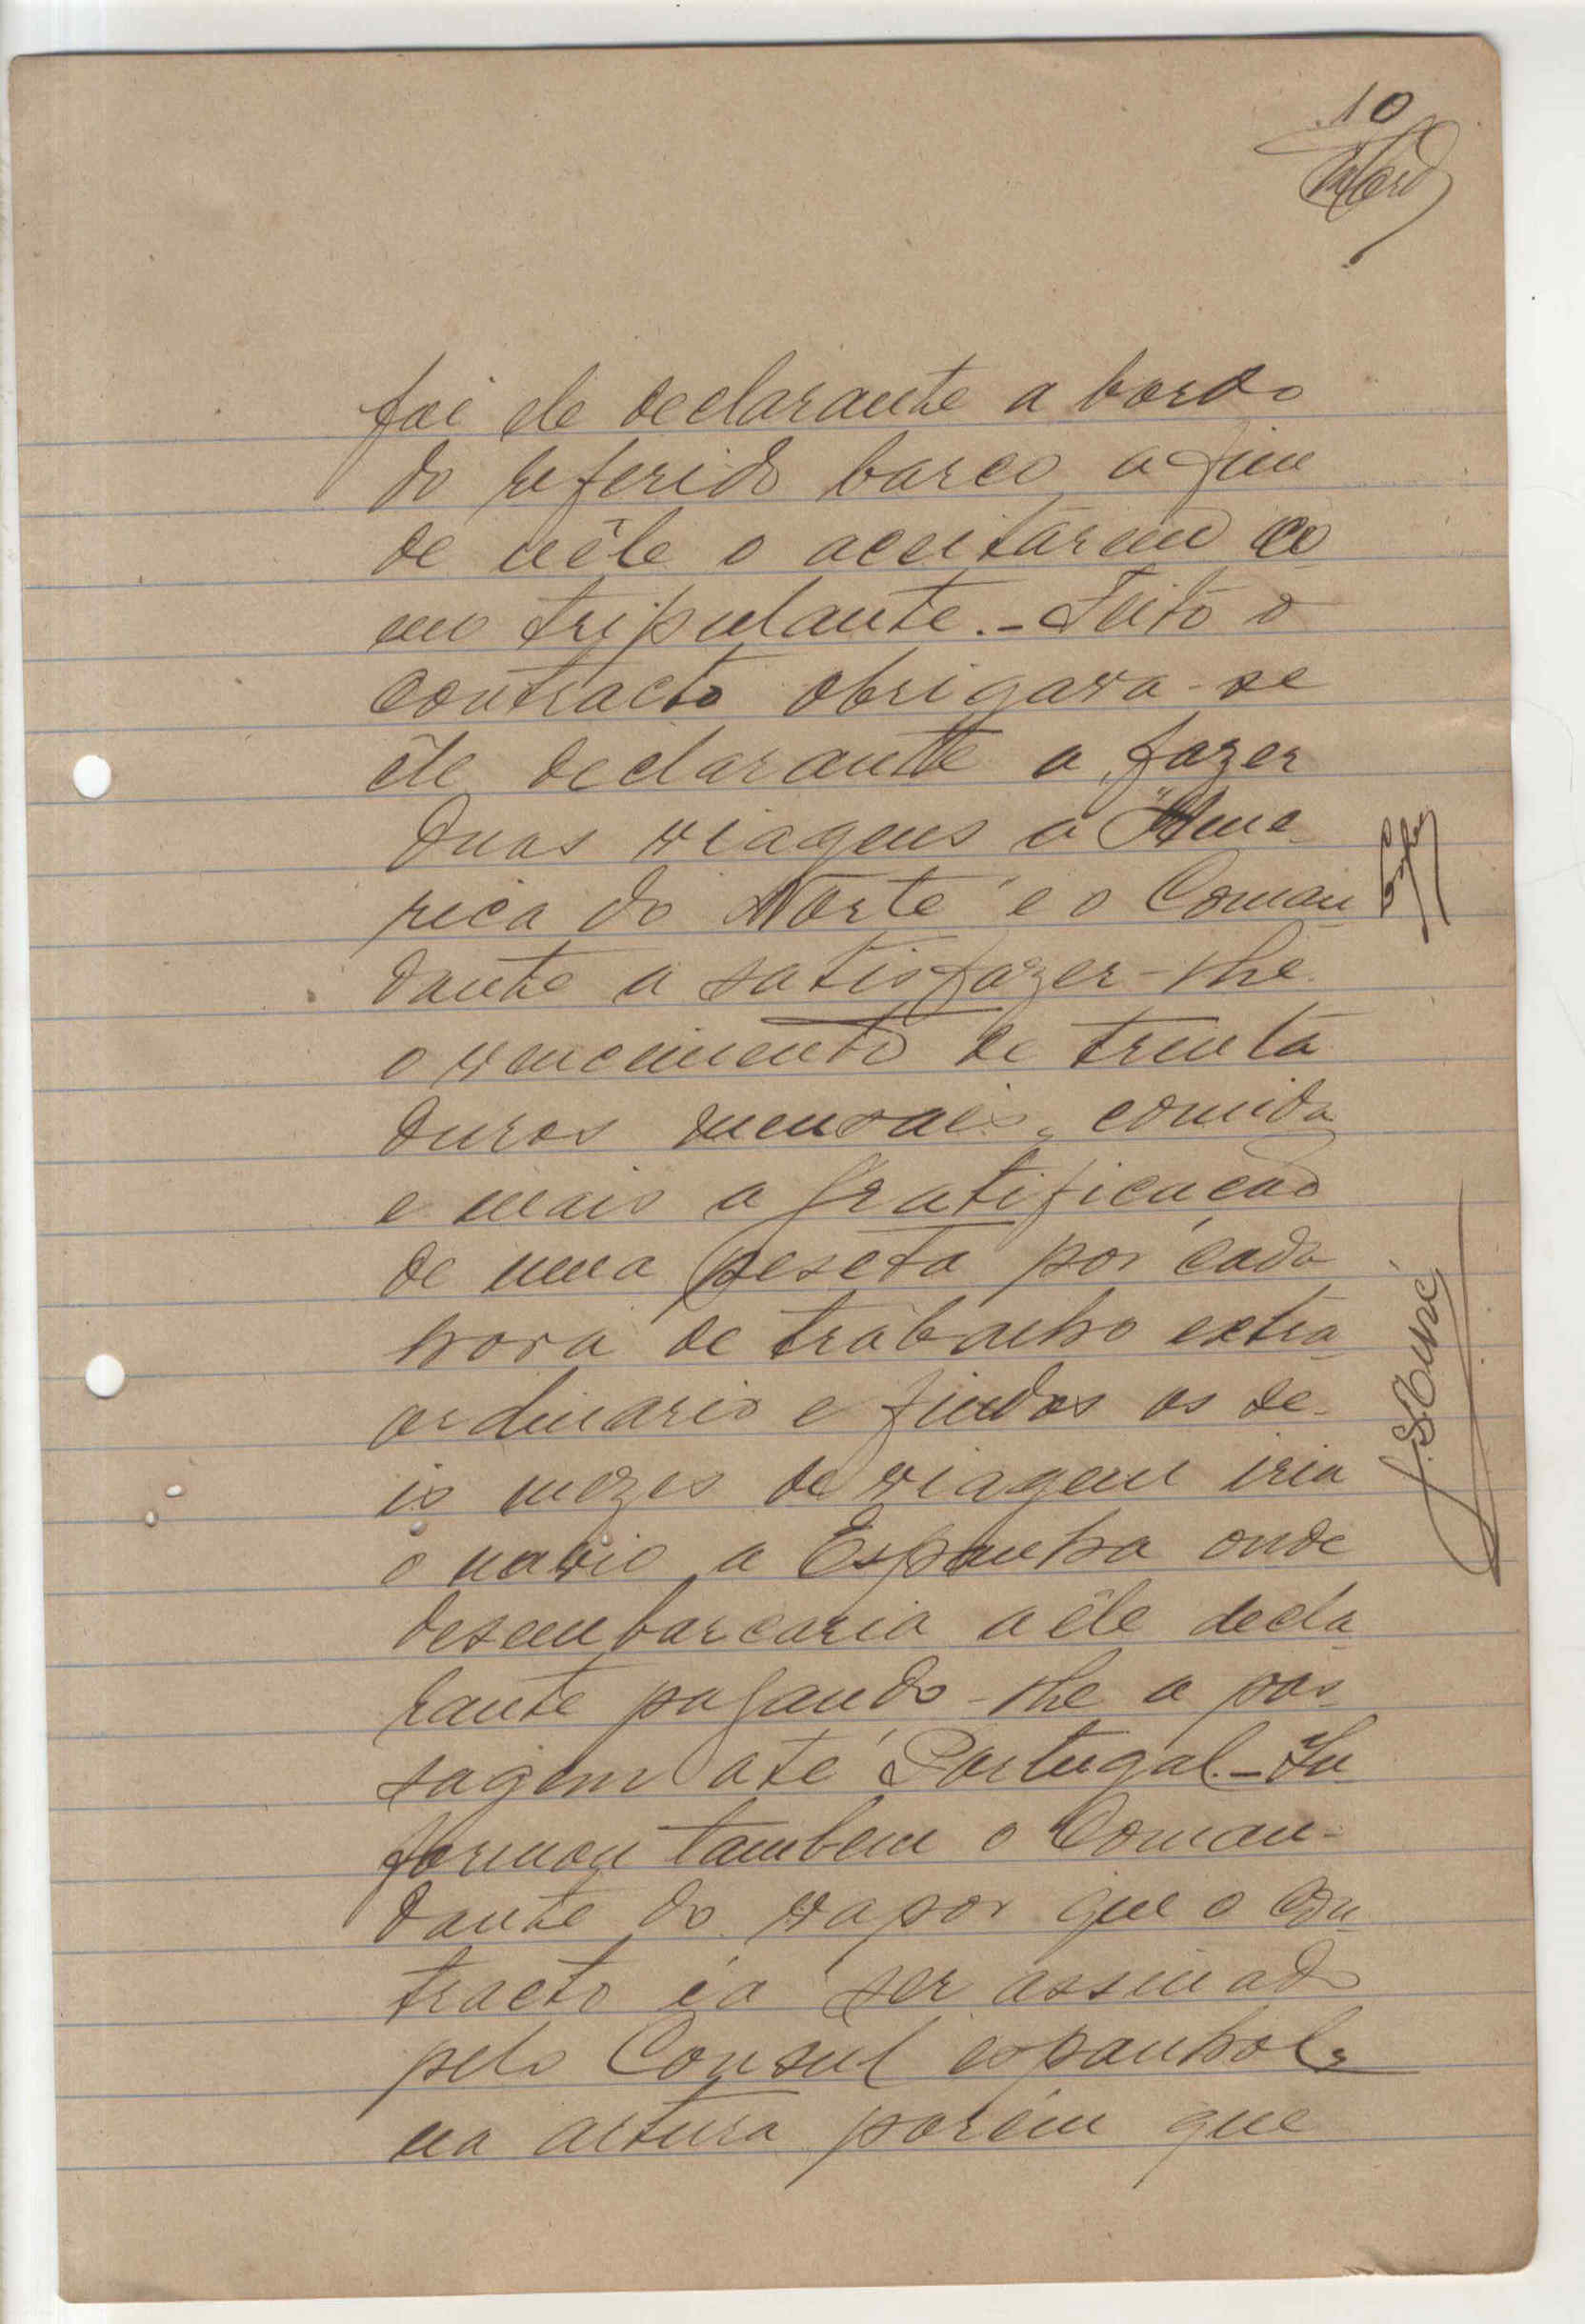 10
foi ele declarante a bordo
do referido barco a fim
de nêle o aceitarem co
mo tripulante. - Feito o
contracto obrigava-se
êle declarante a fazer
duas viagens a "Ame
rica do Norte" e o Coman
dante a satisfazer-lhe
o vencimento de trinta
duros mensais, comida
e mais a gratificação
de uma peseta por cada
hora de trabalho extra
ordinario e findos os se-
is mezes de viagem iria
o navio a Espanha onde
desembarcaria a êle decla
rante pagando-lhe a pas
sagem até Portugal. - In
formou tambem o Coman-
dante do vapor que o con
tracto ia ser assinado
pelo Consul espanhol,
na altura porém que